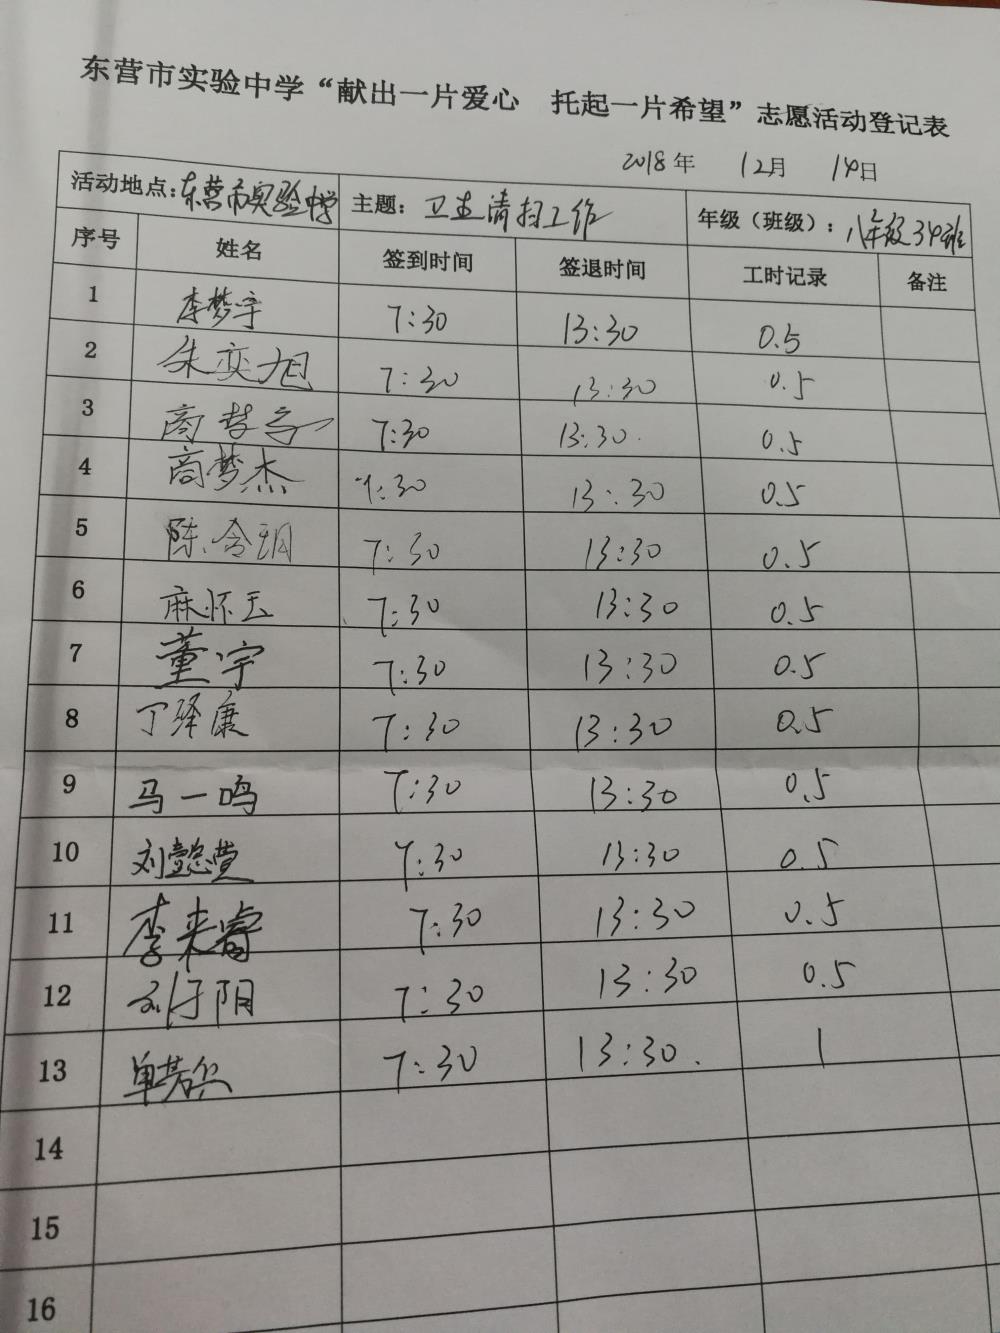 东营市实验中学“献出一片爱心 托起一片希望”志愿活动登记表
2018年 12月 14日
活动地点：东营市实验中学 主题：卫生清扫工作 年级（班级）：八年级34班
序号 姓名 签到时间 签退时间 工时记录 备注
1 李梦宇 7:30 13:30 0.5
2 朱奕旭 7:30 13:30 0.5
3 商梦 7:30 13:30 0.5
4 商梦杰 7:30 13:30 0.5
5 陈含玥 7:30 13:30 0.5
6 麻怀玉 7:30 13:30 0.5
7 董宇 7:30 13:30 0.5
8 丁驿康 7:30 13:30 0.5
9 马一鸣 7:30 13:30 0.5
10 刘懿萱 7:30 13:30 0.5
11 李来睿 7:30 13:30 0.5
12 刘子阳 7:30 13:30 0.5
13 单若 7:30 13:30. 1
14
15
16